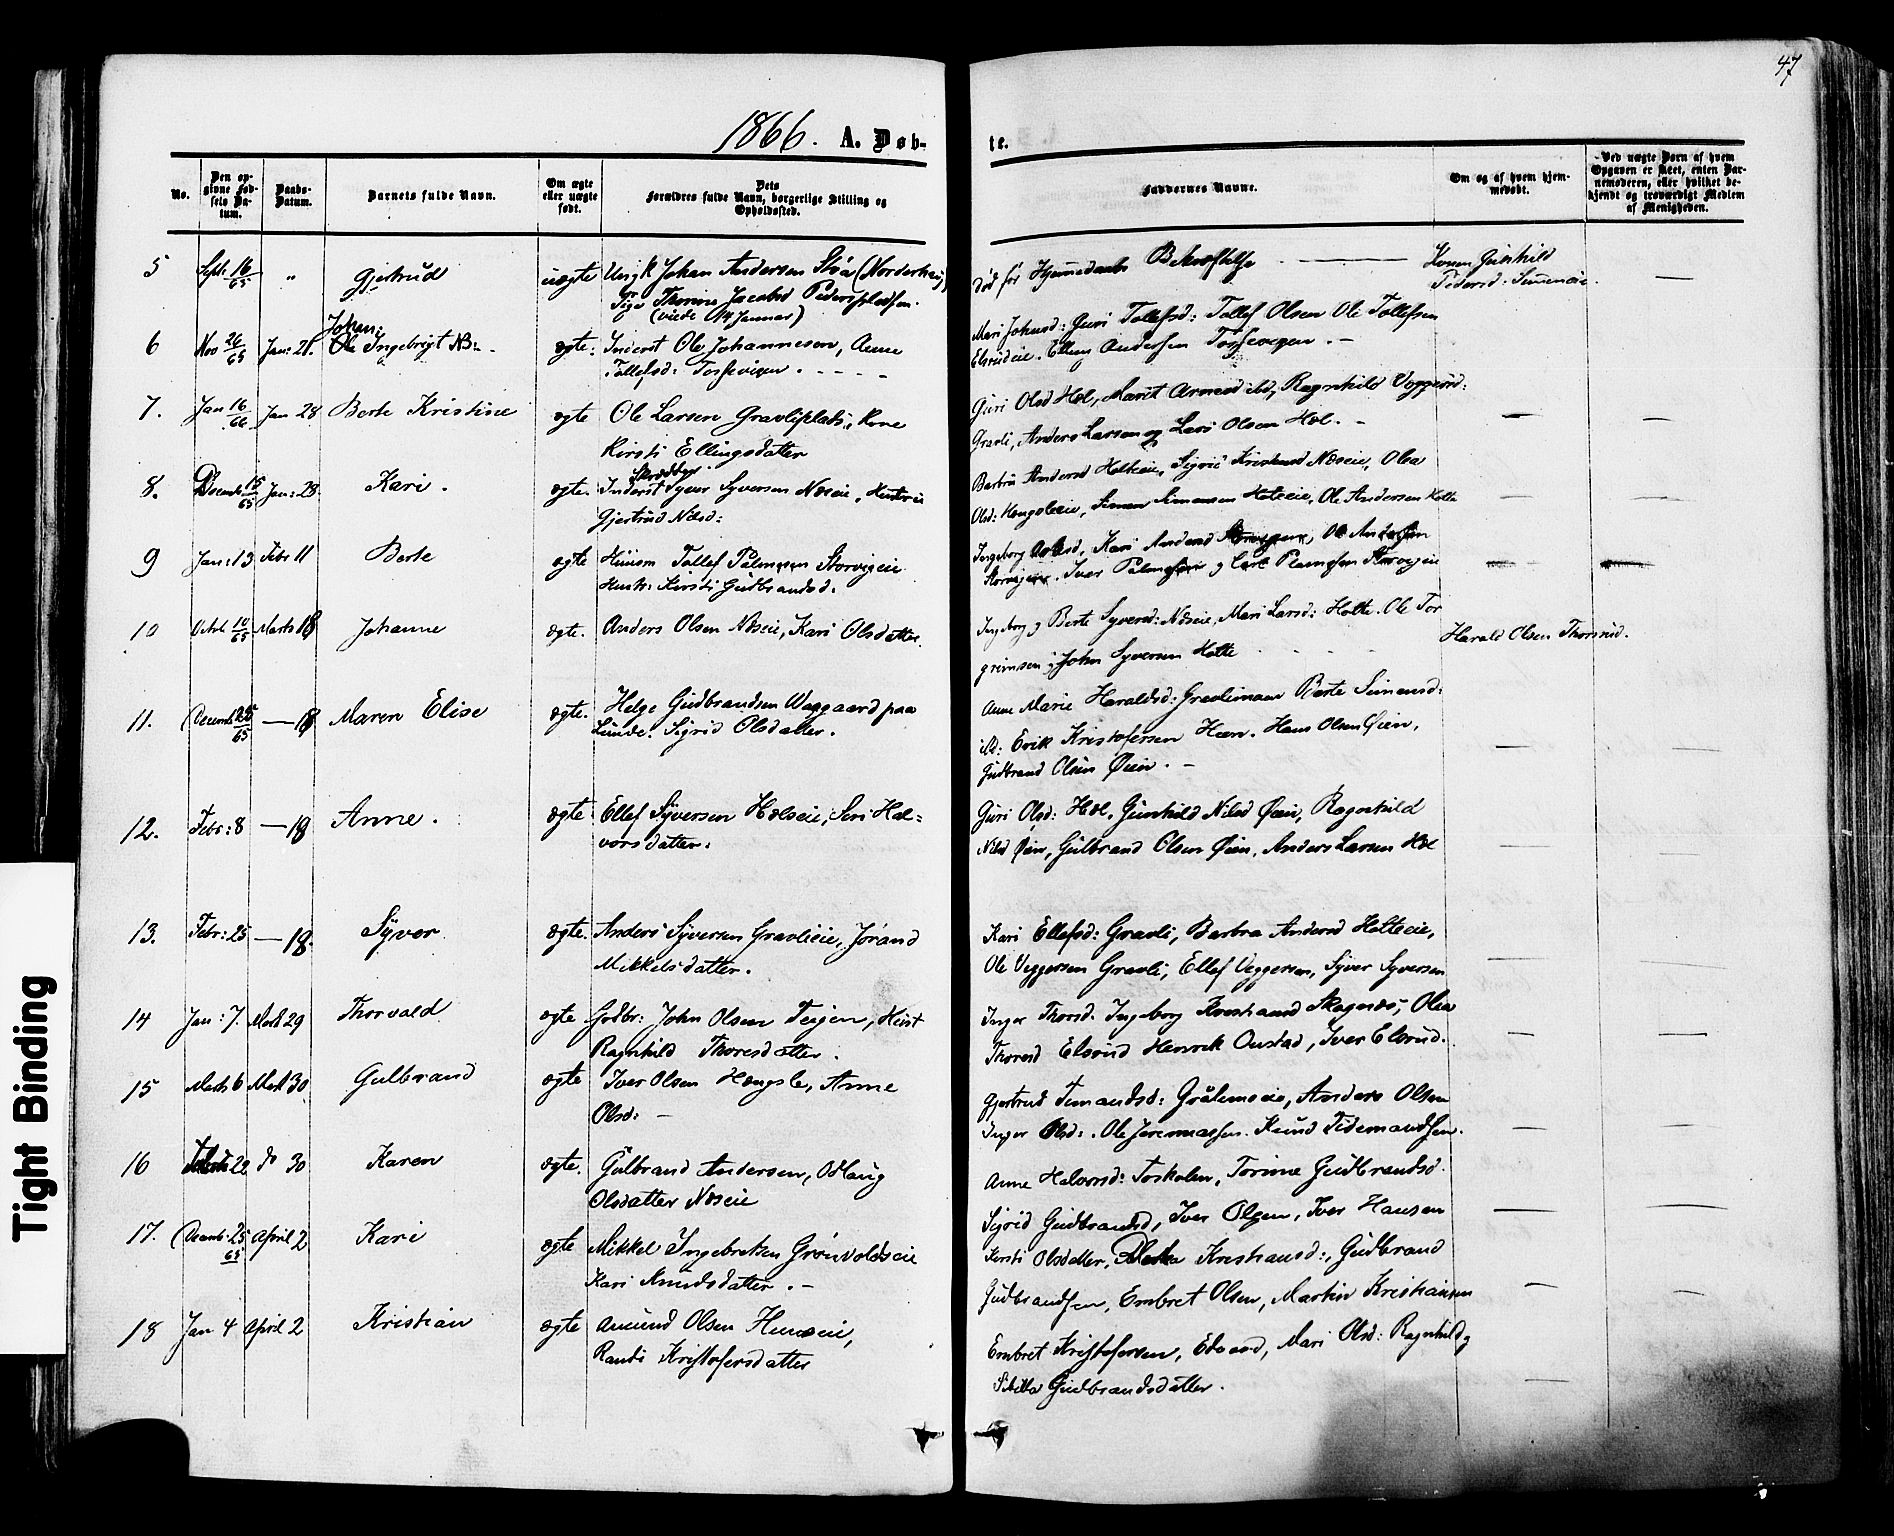 47
1866. A. Døb-
te.
No.
Den op-
givne Fød-
sels Da-
tum.
Daabs-
Datum.
Barnets fulde Navn.
Om ægte
eller uægte
født.
Dets
Forældres fulde Navn, borgerlige Stilling og
Opholdssted.
Faddernes Navne.
Om og af hvem hjem-
medøbt.
Ved uægte Børn af hvem
Opgaven er skeet, enten Bar-
nemoderen, eller hvilket be-
kjendt og troværdigt Medlem
af Menigheden.
5 Septr 16/65 " Gjertrud uægte Ungk Johan Andersen Stóa (Norderhaug)
Pige Thorine Jacobsd Pederspladsen.
(viede 14 Januar)
død før Hjemmedaabs Bekræftelse Konen Gunhild
Pedersd:
6 Nov 26/65 Jan: 21. Johan:
Ole Ingebrigt NB: ægte: Inderst Ole Johannesen, Anne
Tollefsd: Tossevigen.
Mari Johnsd: Guri Tollefsd: Tollef Olsen Ole Tollefsen
Elsrudeie. Elling Andersen Tossevigen.
7. Jan 16/66 Jan 28 Berte Kristine ægte Ole Larsen Gravliplads, Kone
Kirsti Ellingsdatter
Guri Olsd Hol, Marit Arnesd ibd, Ragnhild Veggersd:
Gravli, Anders Larsen og Lars Olsen Hol.
8. Decemb 15/65 Jan: 28. Kari. ægte. Inderst Syver Syversen Næseie, Hustru
Gjertrud Nilsd:
Barbra Andersd Holteeie, Sigrid Kristiansd Næseie, Olea
Olsd: Hengsleeie, Simen Simensen Holteeie, Ole Andersen Holte
9 Jan: 13 Febr 11 Berte ægte Huusm Tollef Palmesen Storvigeie
Hustr: Kirsti Gudbrandsd.
Ingeborg Olsd, Kari Andersd Storvigeie, Ole Andersen
Storvigeie. Iver Palmesen og Carl Palmesen Storvigeie
10 Octob 10/65 Marts 18 Johanne ægte. Anders Olsen Næseie, Kari Olsdatter.
Ingeborg og Berte Syversd: Næseie, Mari Larsd: Holte. Ole Tor
grimsen og John Syversen Holte
Harald Olsen Thorsrud.
11. Decemb 25/65 — 18 Maren Elise ægte. Helge Gudbrandsen Waagaard paa
Lunde. Sigrid Olsdatter.
Anne Marie Haraldsd: Gravlimoen Berte Simensd:
ibd: Erik Kristofersen Hæn. Hans Olsen Øien,
Gudbrand Olsen Øien.
12. Febr: 8 — 18 Anne. ægte Ellef Syversen Holseie, Siri Hal=
vorsdatter.
Guri Olsd: Hol. Gunhild Nilsd Øien, Ragnhild
Nilsd Øien, Gulbrand Olsen Øien. Anders Larsen Hol
13. Febr: 25 — 18. Syver ægte. Anders Syversen Gravlieie, Jørand
Mikkelsdatter.
Kari Ellefsd: Gravli, Barbra Andersd Holteeie,
Ole Veggersen Gravli, Ellef Veggersen, Syver Syversen
14 Jan: 7. Marts 29 Thorvald ægte Gbr: John Olsen Teigen, Hust
Ragnhild Thoresdatter.
Inger Thorsd. Ingeborg Kristiansd Skagnæs, Olea
Thoresd Elsrud Henrik Onstad, Iver Elsrud.
15 Marts 6 Marts 30 Gulbrand ægte Iver Olsen Hengsle, Anne
Olsd:
Gjertrud Timandsd: Anders Olsen
Inger Olsd:. Ole Jeremiassen. Knud Tidemandsen.
16 22 do 30 Karen ægte. Gulbrand Andersen, Odlaug
Olsdatter Næseie
Anne Halvorsd: Torine Gudbrandsd.
Sigrid Gudbrandsd, Iver Olsen, Iver Hansen
17. Decemb. 25/65 April 2 Kari ægte Mikkel Ingebretsen Grønvoldseie
Kari Knudsdatter.
Kirsti Olsdatter, Kristiansd:, Gudbrand
Gudbrandsen, Embret Olsen, Martin Kristiansen
18 Jan 4 April 2 Kristian ægte Amund Olsen
Randi Kristofersdatter
Embret Kristofersen, Edvard, Mari Olsd: Ragnhild og
Sibilla Gudbrandsdatter.
Tight Binding